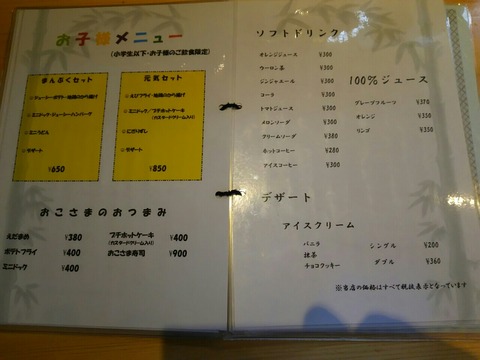 お子様メニュー
(小学生以下・お子様のご飲食限定)
まんぷくセット
ミニうどん
デザート
¥650
元気セット
☆エビフライ・地鶏のから揚げ
☆ミニドック/プチホットケーキ
(カスタードクリーム入り)
☆にぎりずし
☆デザート
¥850
おこさまのおつまみ
えだまめ ¥380
ポテトフライ ¥400
ミニドック ¥400
プチホットケーキ ¥400
(カスタードクリーム入り)
おこさま寿司 ¥900
ソフトドリンク
オレンジジュース ¥300
ウーロン茶 ¥300
ジンジャエール ¥300
コーラ ¥300
トマトジュース ¥300
メロンソーダ ¥300
クリームソーダ ¥380
ホットコーヒー ¥280
アイスコーヒー ¥300
100%ジュース
グレープフルーツ ¥370
オレンジ ¥350
リンゴ ¥350
デザート
アイスクリーム
バニラ
抹茶
チョコクッキー
シングル ¥200
ダブル ¥360
※当店の価格はすべて税抜表示となっています